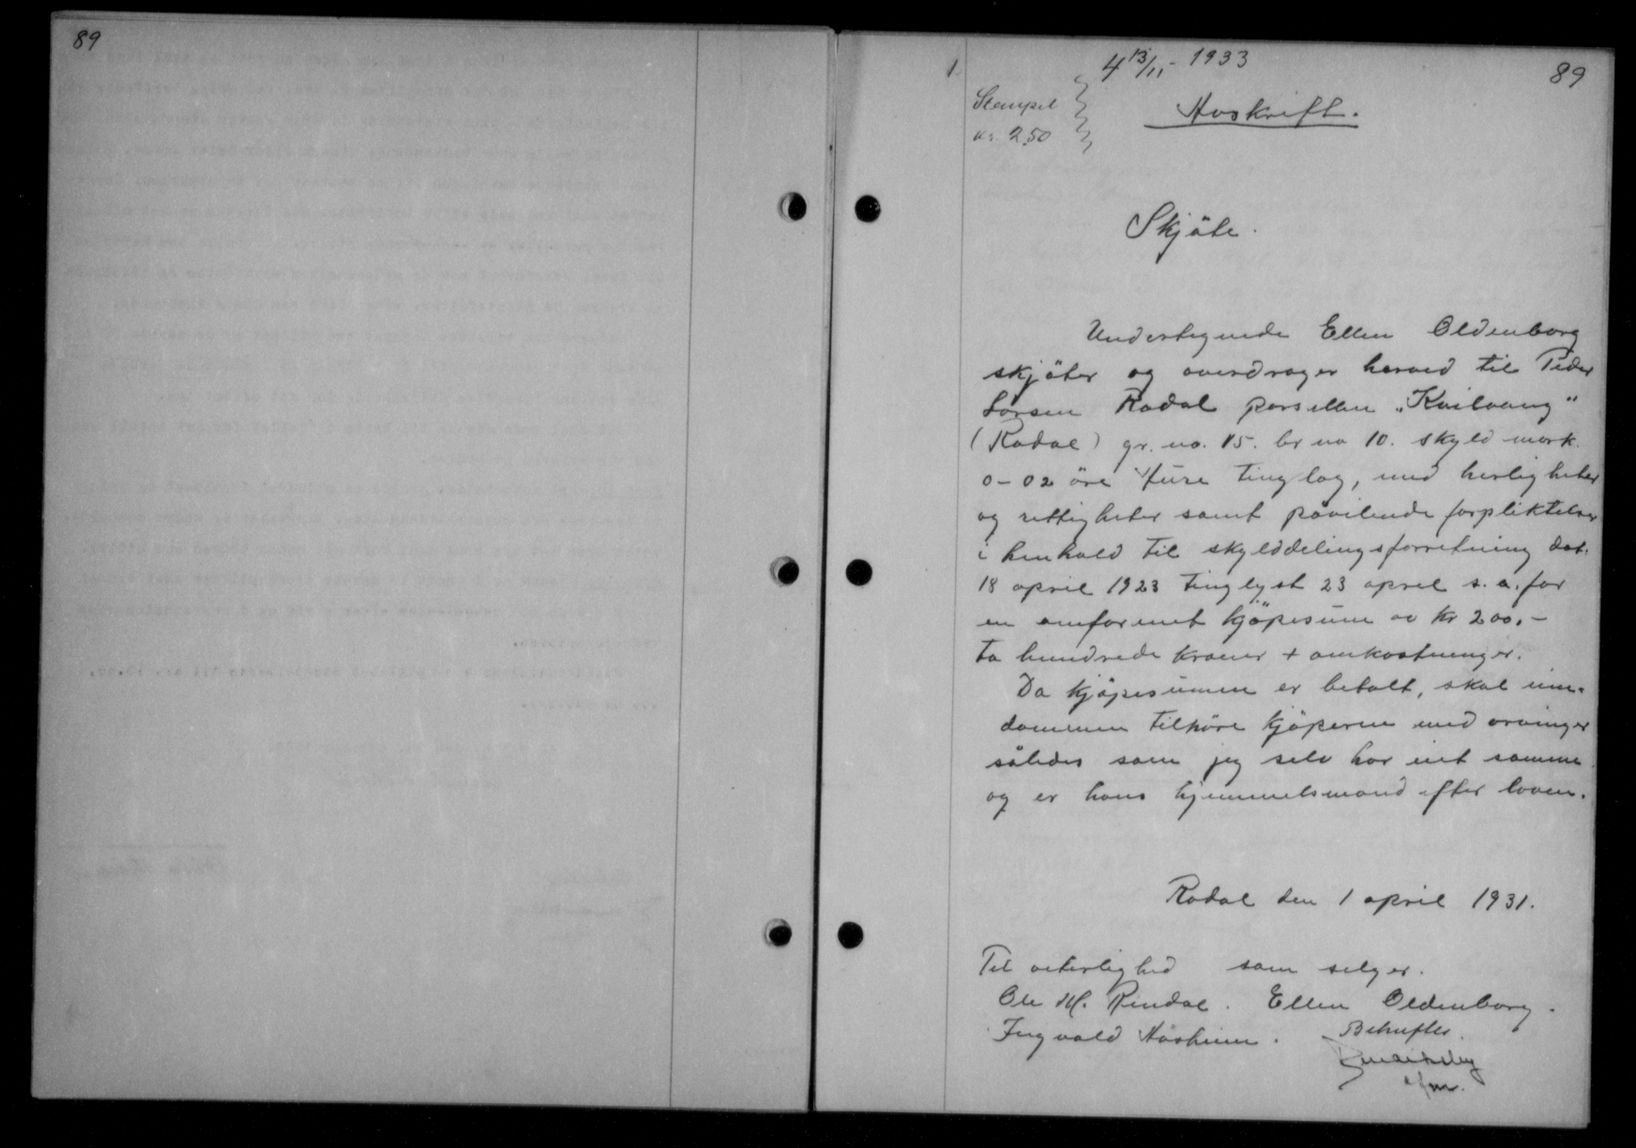 89
1
4 13/11 - 1933
89
Stempel
kr. 2.50
Avskrift.
Skjöte.
Undertegnede Ellen Oldenborg
skjöter og overdrager herved til Peder
Larsen Rødal parsellen „Kvilvang"
(Rødal) gr. no. 15. br no 10. skyld mark.
0-02 öre Fure tinglag, med herligheter
og rettigheter samt påvilende forpliktelser
i henhold til skylddelingsforretning dat.
18 april 1923 tinglyst 23 april s. a. for
en omforenet kjöpesum av kr 200.-
to hundrede kroner + omkostninger.
Da kjöpesummen er betalt, skal eien-
dommen tilhöre kjöperen med arvinger
således som jeg selv har eiet samme
og er hans hjemmelsmand efter loven.
Rødal den 1 april 1931.
Til vitterlighed som selger.
Ole M. Rindal. Ellen Oldenborg.
Ingvald Åsheim. Bekreftes.